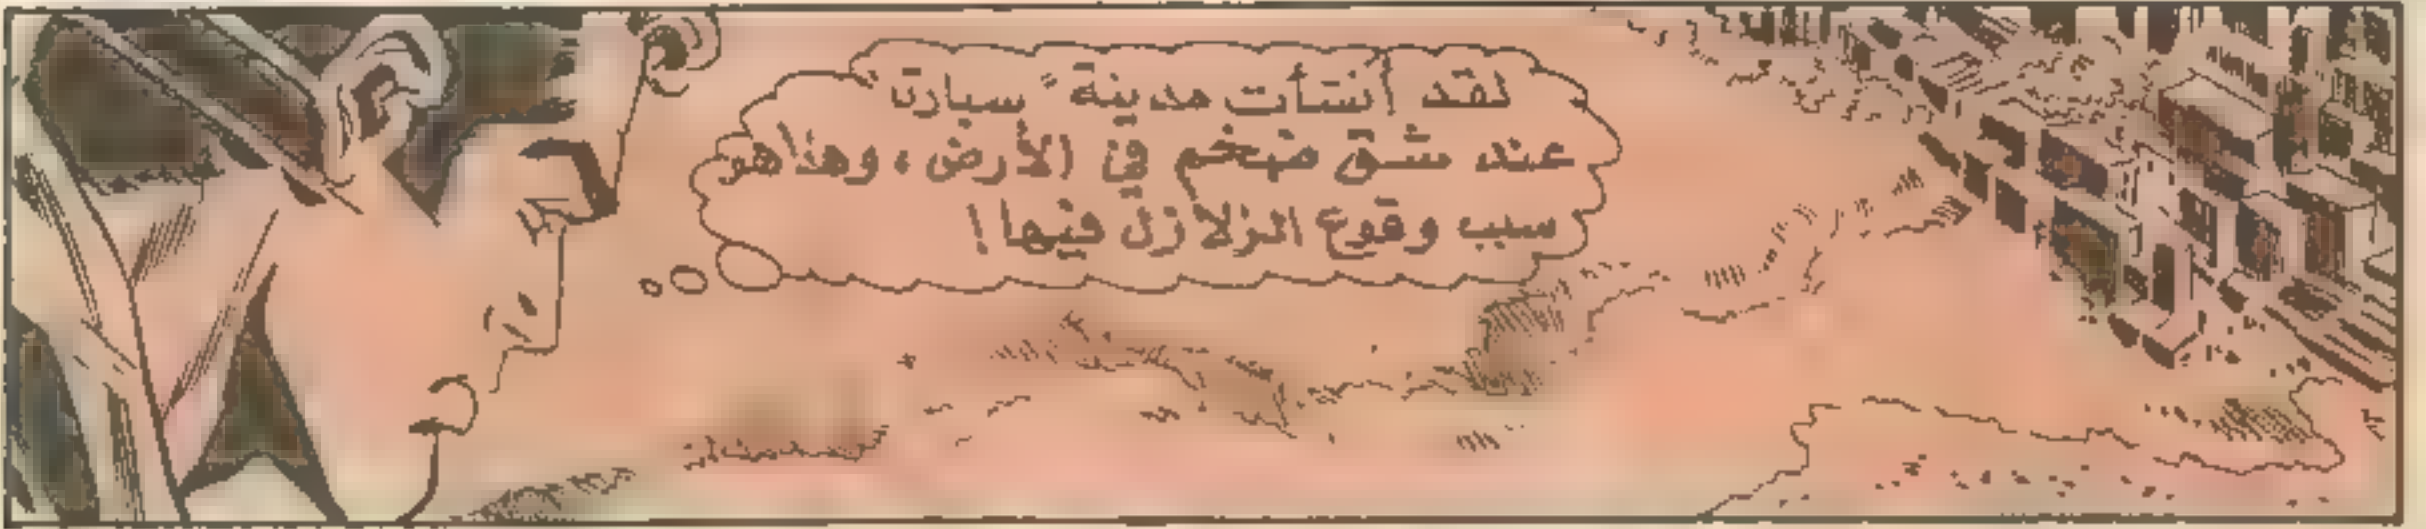 لقد أنشأت مدينة "سبارتا"
عند شق ضخم في الأرض، وهذا هو
سبب وقوع الزلازل فيها!